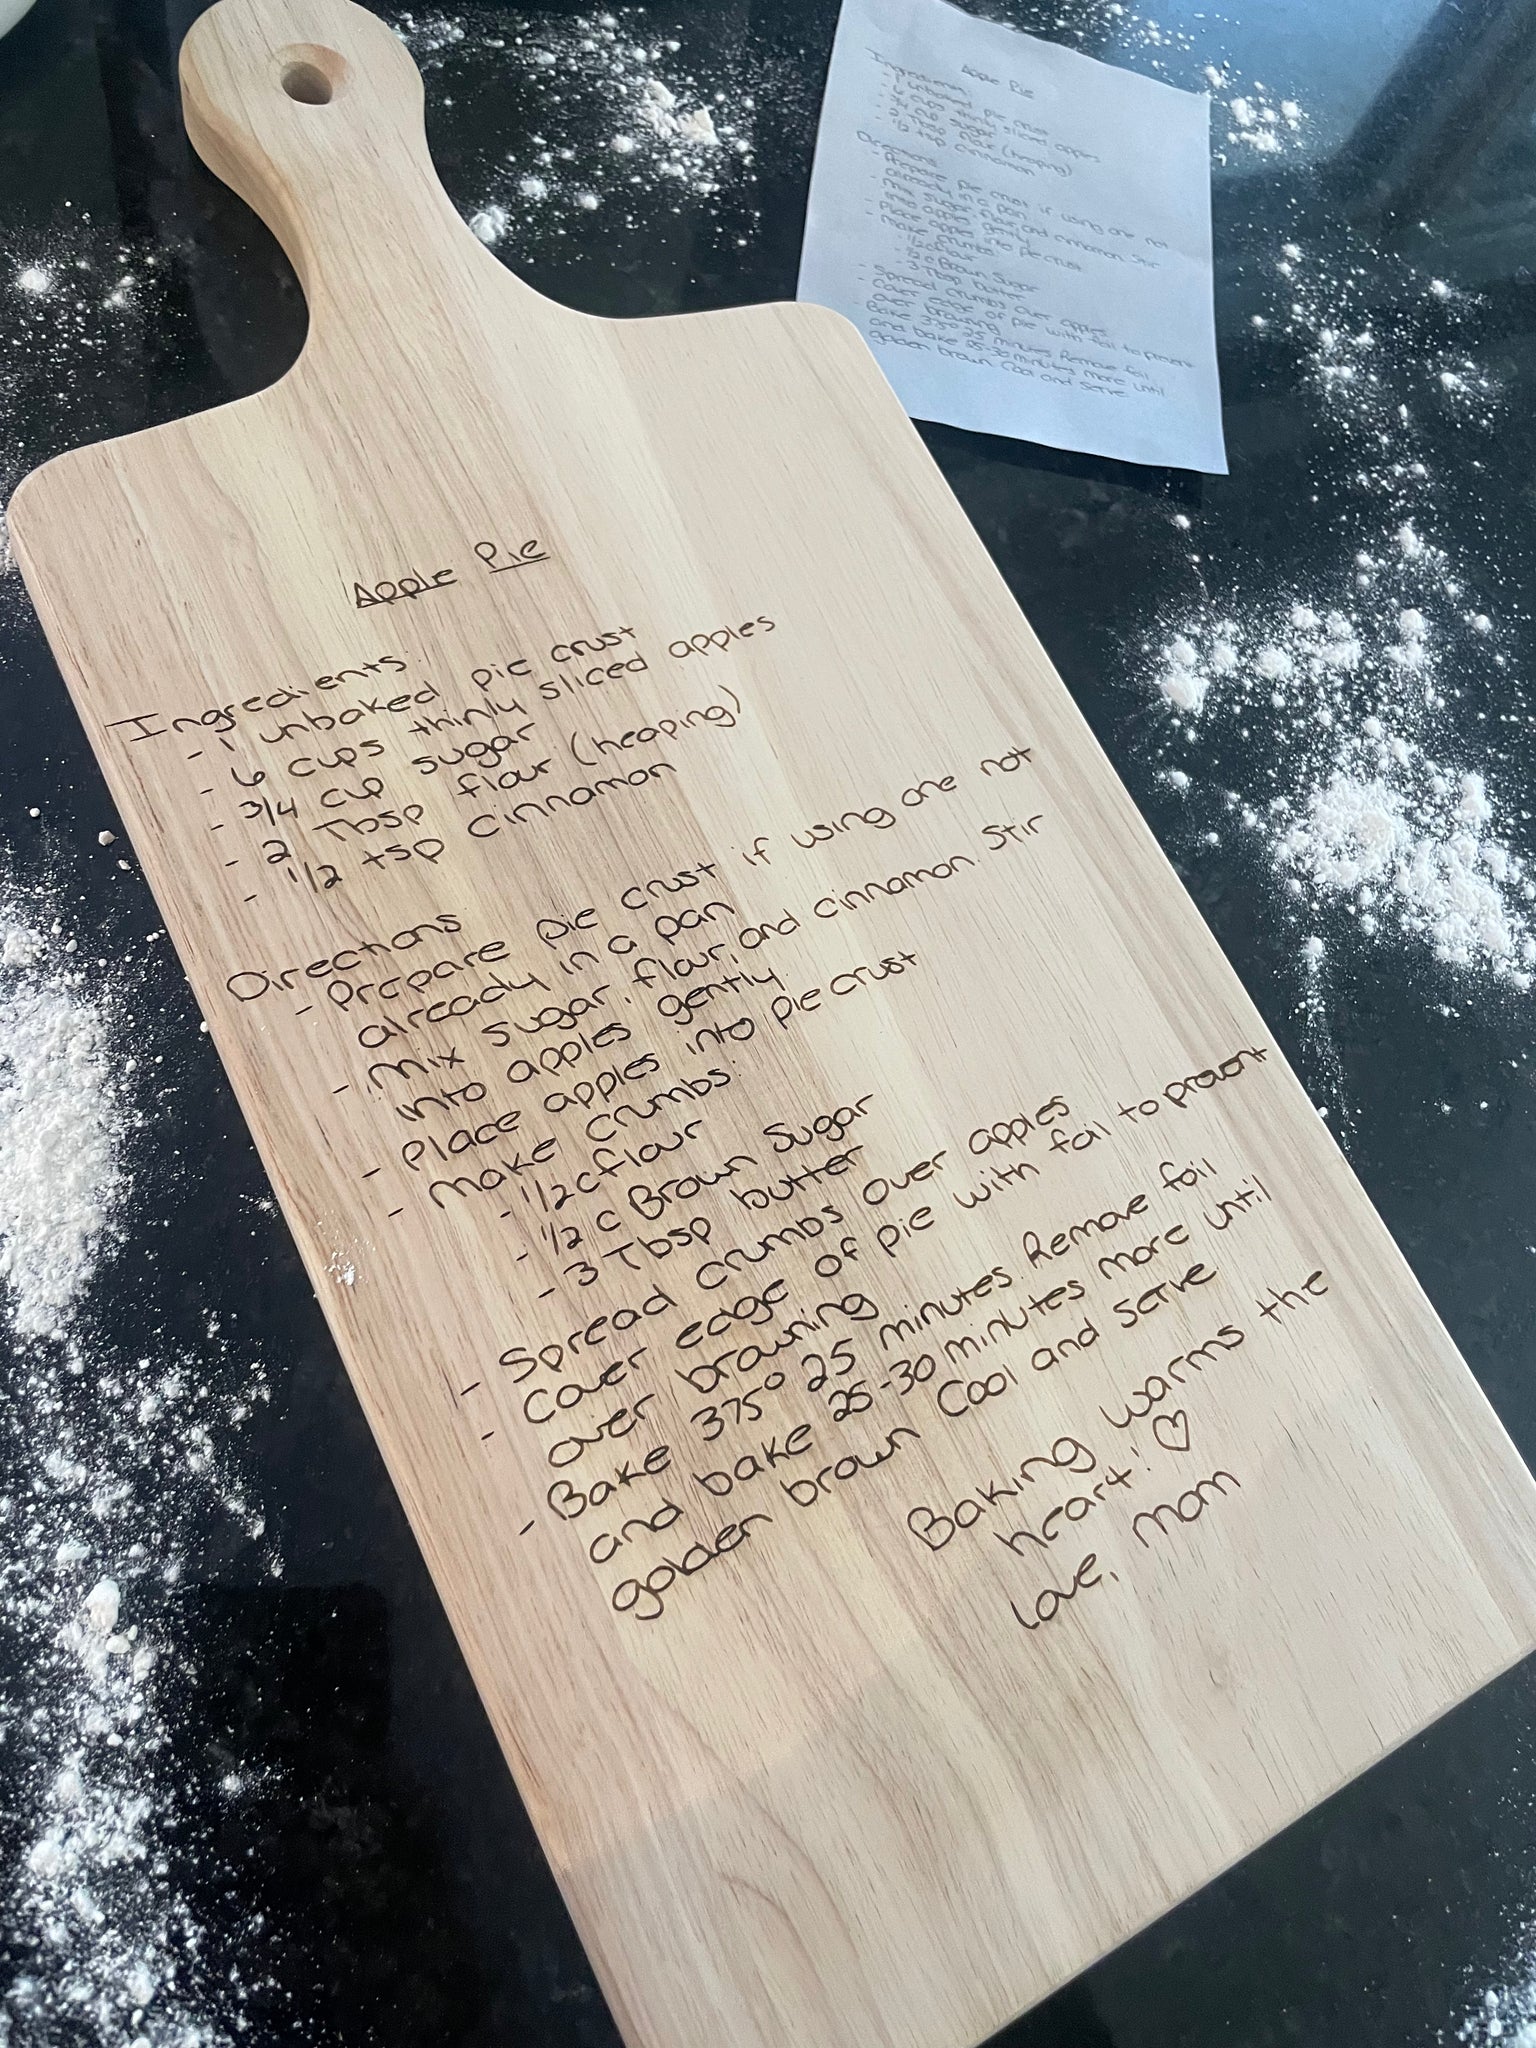 Apple Pie
Ingredients:
- 1 unbaked pie crust
- 6 cups thinly sliced apples
- 3/4 cup sugar
- 2 Tbsp flour (heaping)
- 1/2 tsp cinnamon
Directions
- Prepare pie crust if using one not
already in a pan
- Mix sugar, flour, and cinnamon. Stir
into apples gently.
- Place apples into pie crust
- Make crumbs:
- 1/2 c flour
- 1/2 c Brown Sugar
- 3 Tbsp butter
- Spread crumbs over apples
- Cover edge of pie with foil to prevent
over browning
- Bake 375° 25 minutes. Remove foil
and bake 25-30 minutes more until
golden brown Cool and serve
Baking warms the
heart! ♡
Love, Mom
Apple Pie
Ingredients:
- 1 unbaked pie crust
- 6 cups thinly sliced apples
- 3/4 cup sugar
- 2 Tbsp flour (heaping)
- 1/2 tsp cinnamon
Directions
- Prepare pie crust if using one not
already in a pan
- Mix sugar, flour, and cinnamon. Stir
into apples gently.
- Place apples into pie crust
- Make crumbs:
- 1/2 c flour
- 1/2 c Brown Sugar
- 3 Tbsp butter
- Spread crumbs over apples
- Cover edge of pie with foil to prevent
over browning
- Bake 375° 25 minutes. Remove foil
and bake 25-30 minutes more until
golden brown Cool and serve